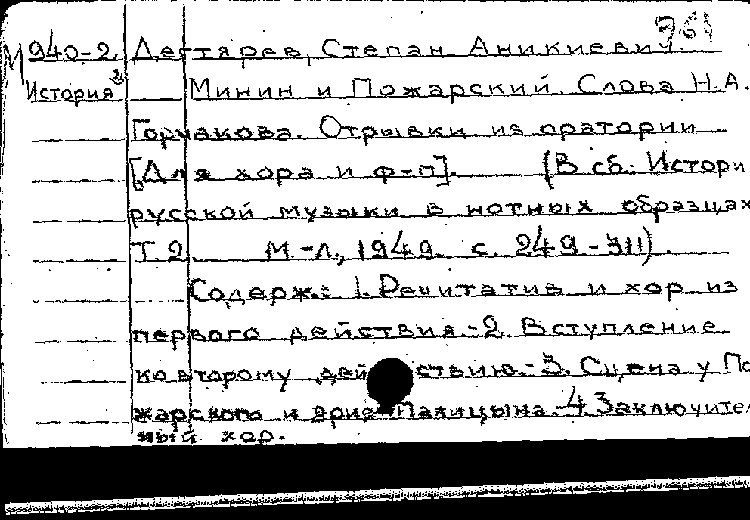 961
М940-2 Дегтярев, Степан Аникиевич.
История 2 Минин и Пожарский. Слова Н.А.
Горчакова. Отрывки из оратории
[Для хора и ф-п]. (В сб. Истори
русской музыки в нотных образцах
Т. 2. М-Л., 1949. с. 249-311).
Содерж.: 1. Речитатив и хор из
первого действия.-2. Вступление
ко второму действию.-3. Сцена у По
жарского и ария Палицына.-4 Заключител
ный хор.